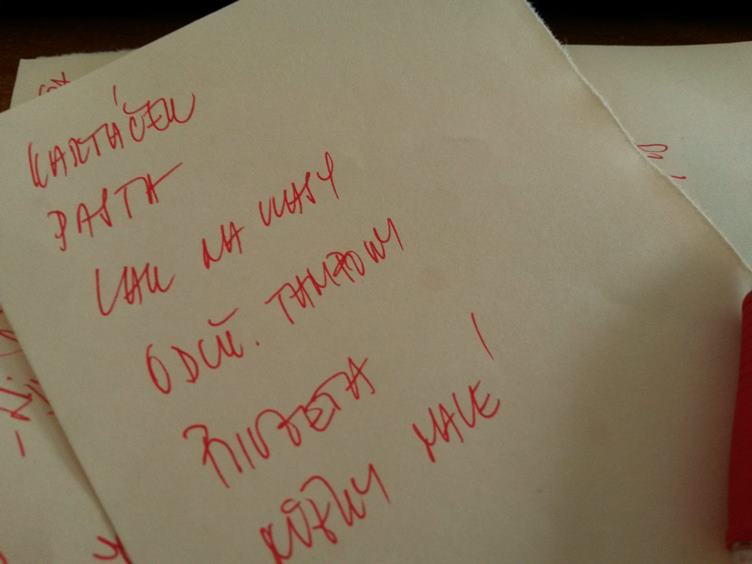 KARTÁČEK
PASTA
LAK NA VLASY
ODLIČ. TAMPONY
PINZETA
NŮŽKY MALÉ